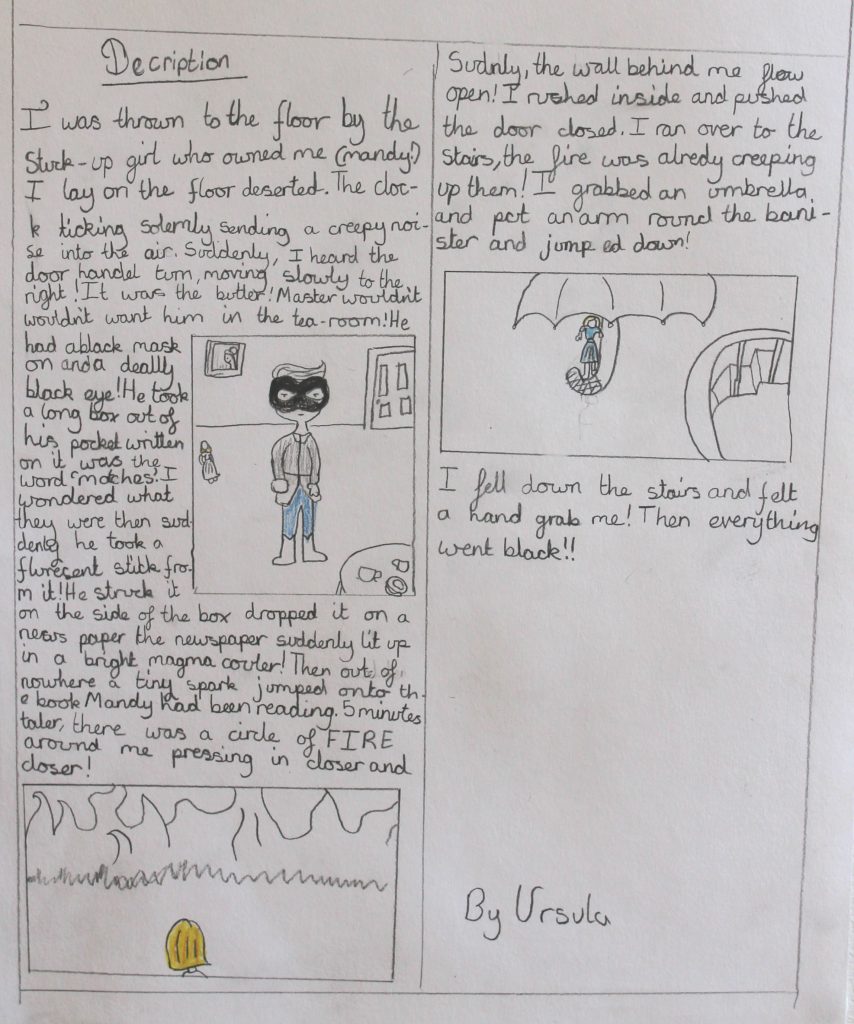 Decription
I was thrown to the floor by the
Stuck-up girl who owned me (mandy!)
I lay on the floor deserted. The cloc-
k ticking solemly sending a creepy noi-
se into the air. Suddenly, I heard the
door handel turn, moving slowly to the
right! It was the butler! Master wouldn't
wouldn't want him in the tea-room! He
had a black mask
on and a deally
black eye! He took
a long box out of
his pocket written
on it was the
word "matches". I
wondered what
they were then sud-
denley he took a
flurecent stick fro-
m it! He struck it
on the side of the box dropped it on a
news paper the newspaper suddenly lit up
in a bright magma couler! Then out of
nowhere a tiny spark jumped onto th-
e book Mandy had been reading. 5 minutes
later, there was a circle of FIRE
around me pressing in closer and
closer!
Sudnly, the wall behind me flow
open! I rushed inside and pushed
the door closed. I ran over to the
stairs, the fire was alredy creeping
up them! I grabbed an umbrella,
and put an arm round the bani-
ster and jumped down!
I fell down the stairs and felt
a hand grab me! Then everything
went black!!
By Ursula